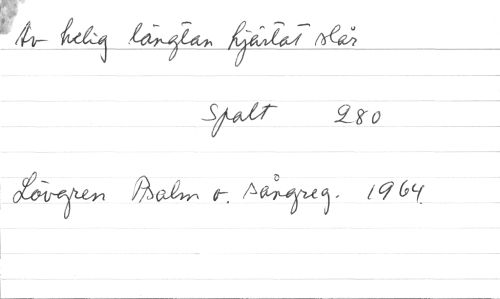 Av helig längtan hjärtat slår
Spalt 280
Lövgren Psalm o. sångreg. 1964.